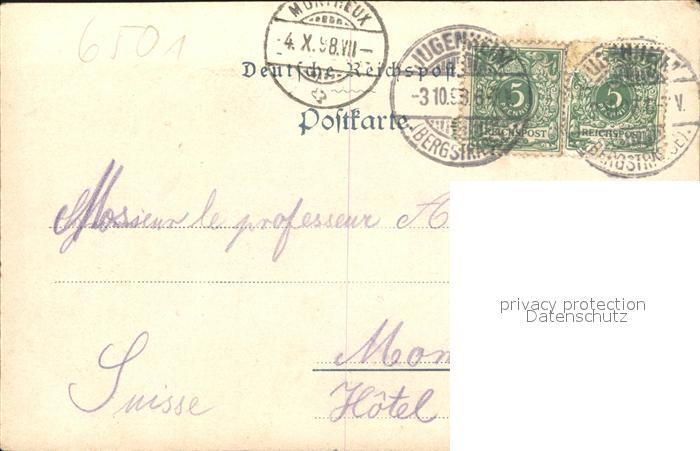 6501
MONTREUX
-4.X.98.VII-
Deutsche Reichspost
Postkarte
JUGENHEIM
-3 10.98.6-7
(BERGSTRASSE)
5
REICHSPOST
5
REICHSPOST
(BERGSTRASSE)
Monsieur le professeur A
Mon
Suisse
Hôtel
privacy protection
Datenschutz